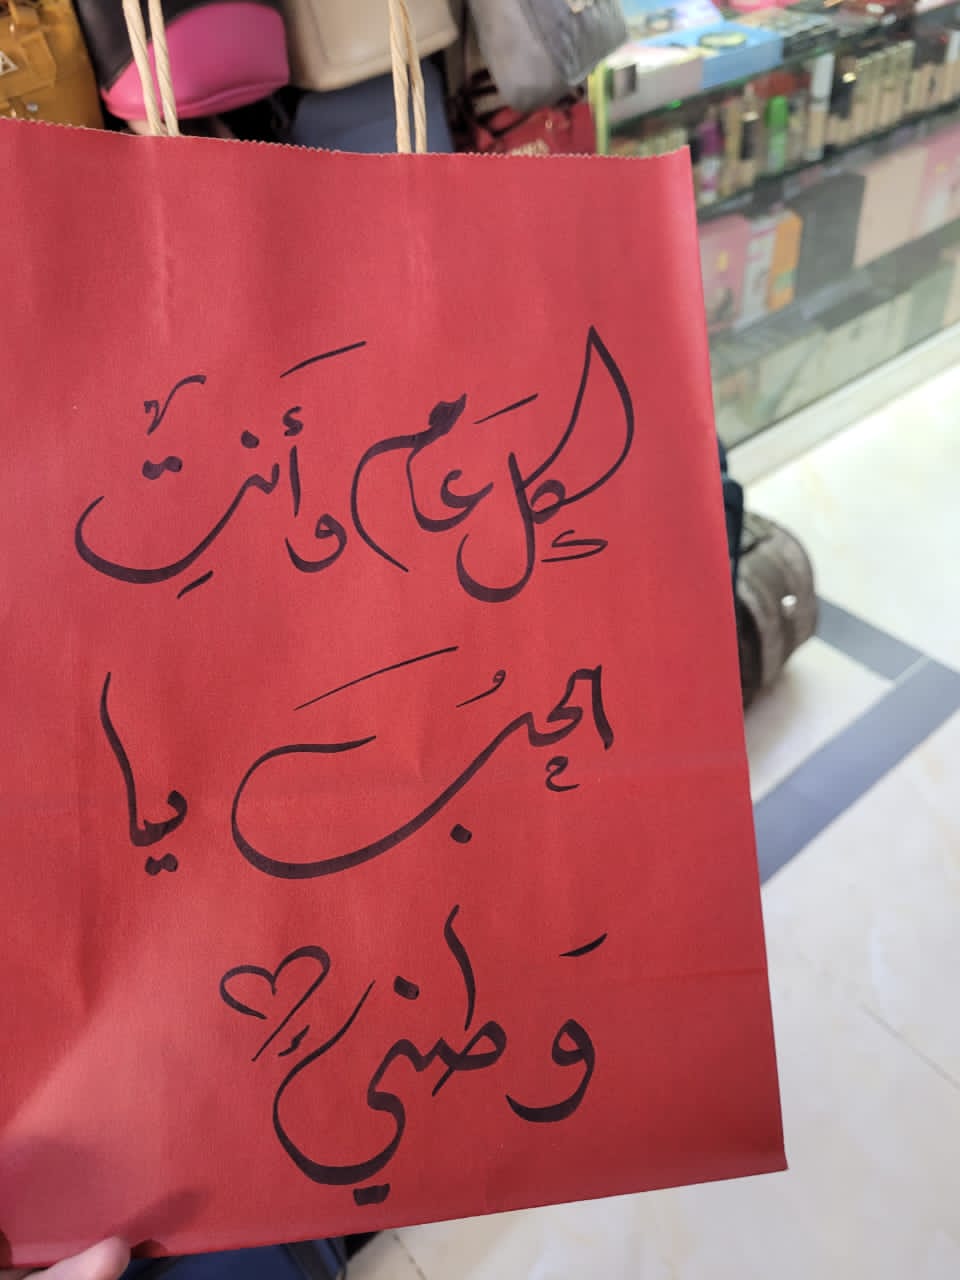 كل عام وأنتِ
الحُب يا
وَطني